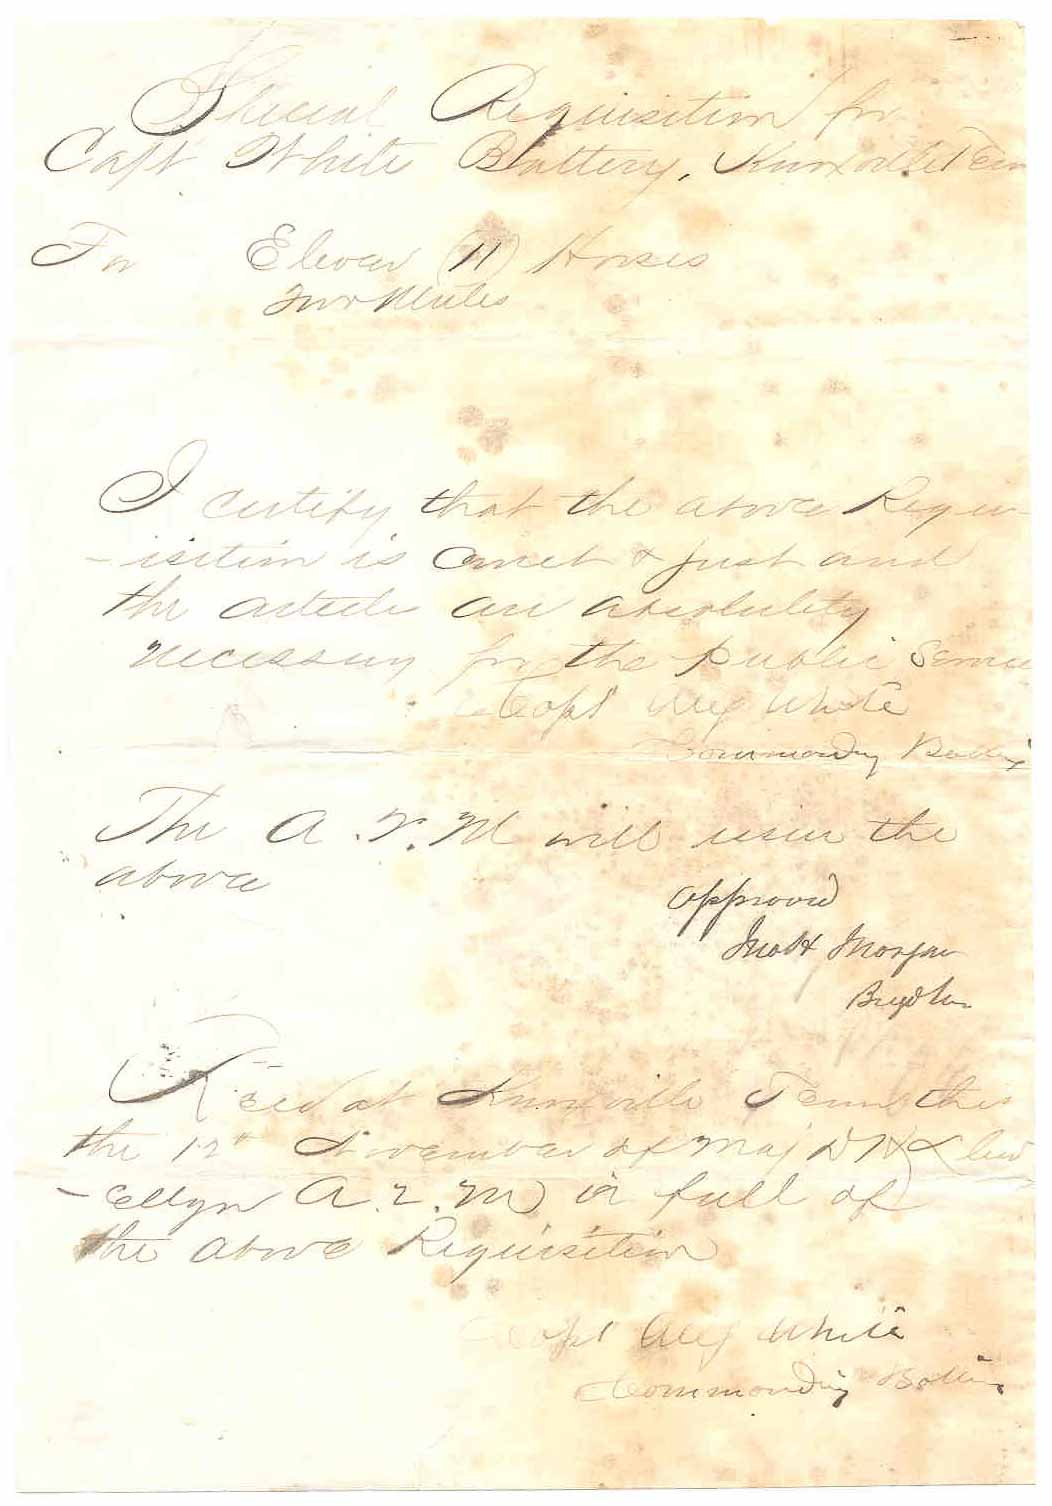 Special Requisition for
Capt White Battery, Knoxville Ten
For Eleven (11) Horses
Two Mules
I certify that the above Requ-
-isition is Correct & just and
the articles are absolutely
necessary for the public Service
Capt Alex White
Commanding Battery
The A. Q. M will issue the
above
Approved
Jno H Morgan
Brig Gen
Reced at Knoxville Tenn this
the 12th November of Maj D H Llew
-ellyn A. Q. M in full of
the above Requisition
Capt Alex White
Commanding Battery